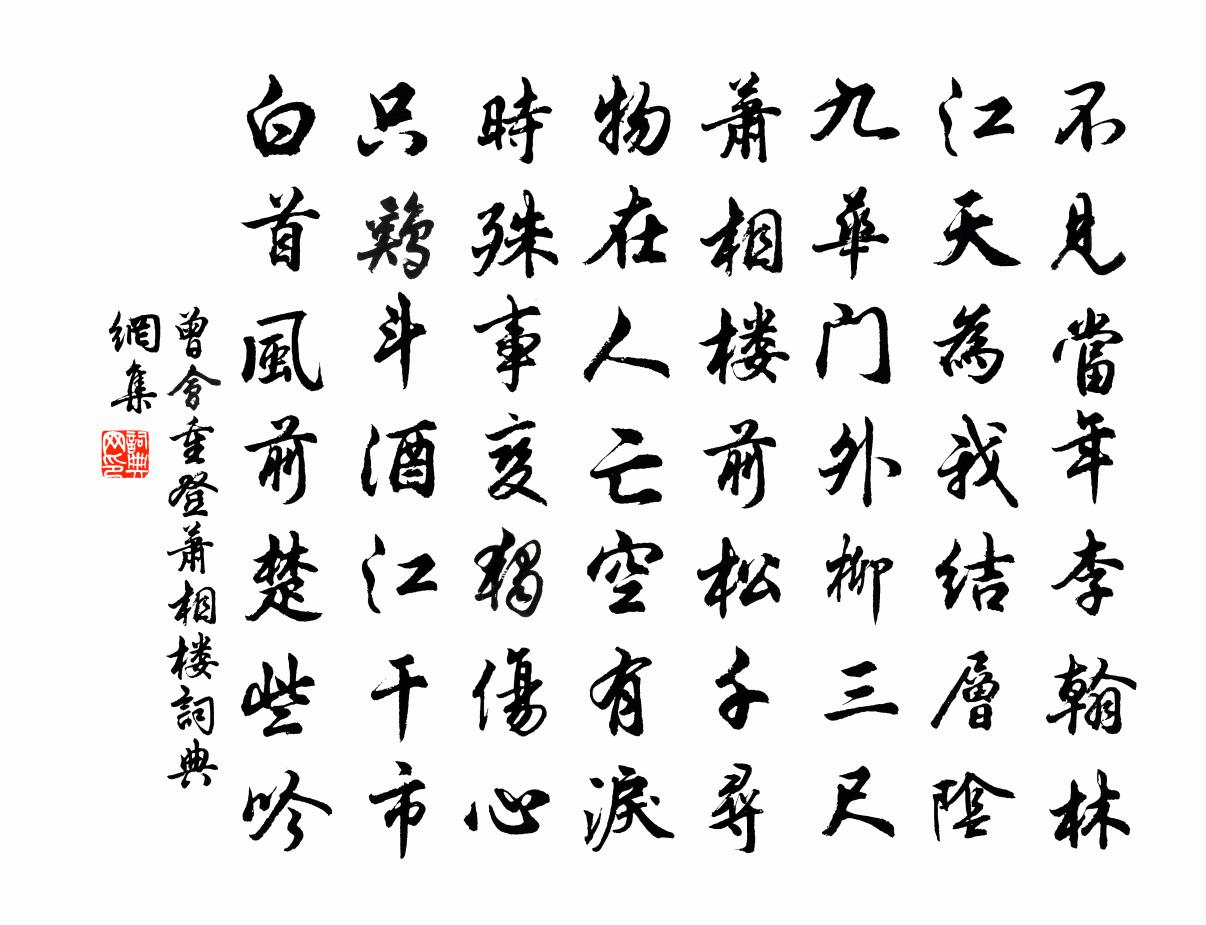 不見當年李翰林
江天為我結層陰
九華門外柳三尺
蕭相楼前松千尋
物在人亡空有淚
時殊事变獨傷心
只鷄斗酒江干市
白首風前楚些吟
曾會重登蕭相楼詞典
網集
詞典
网印